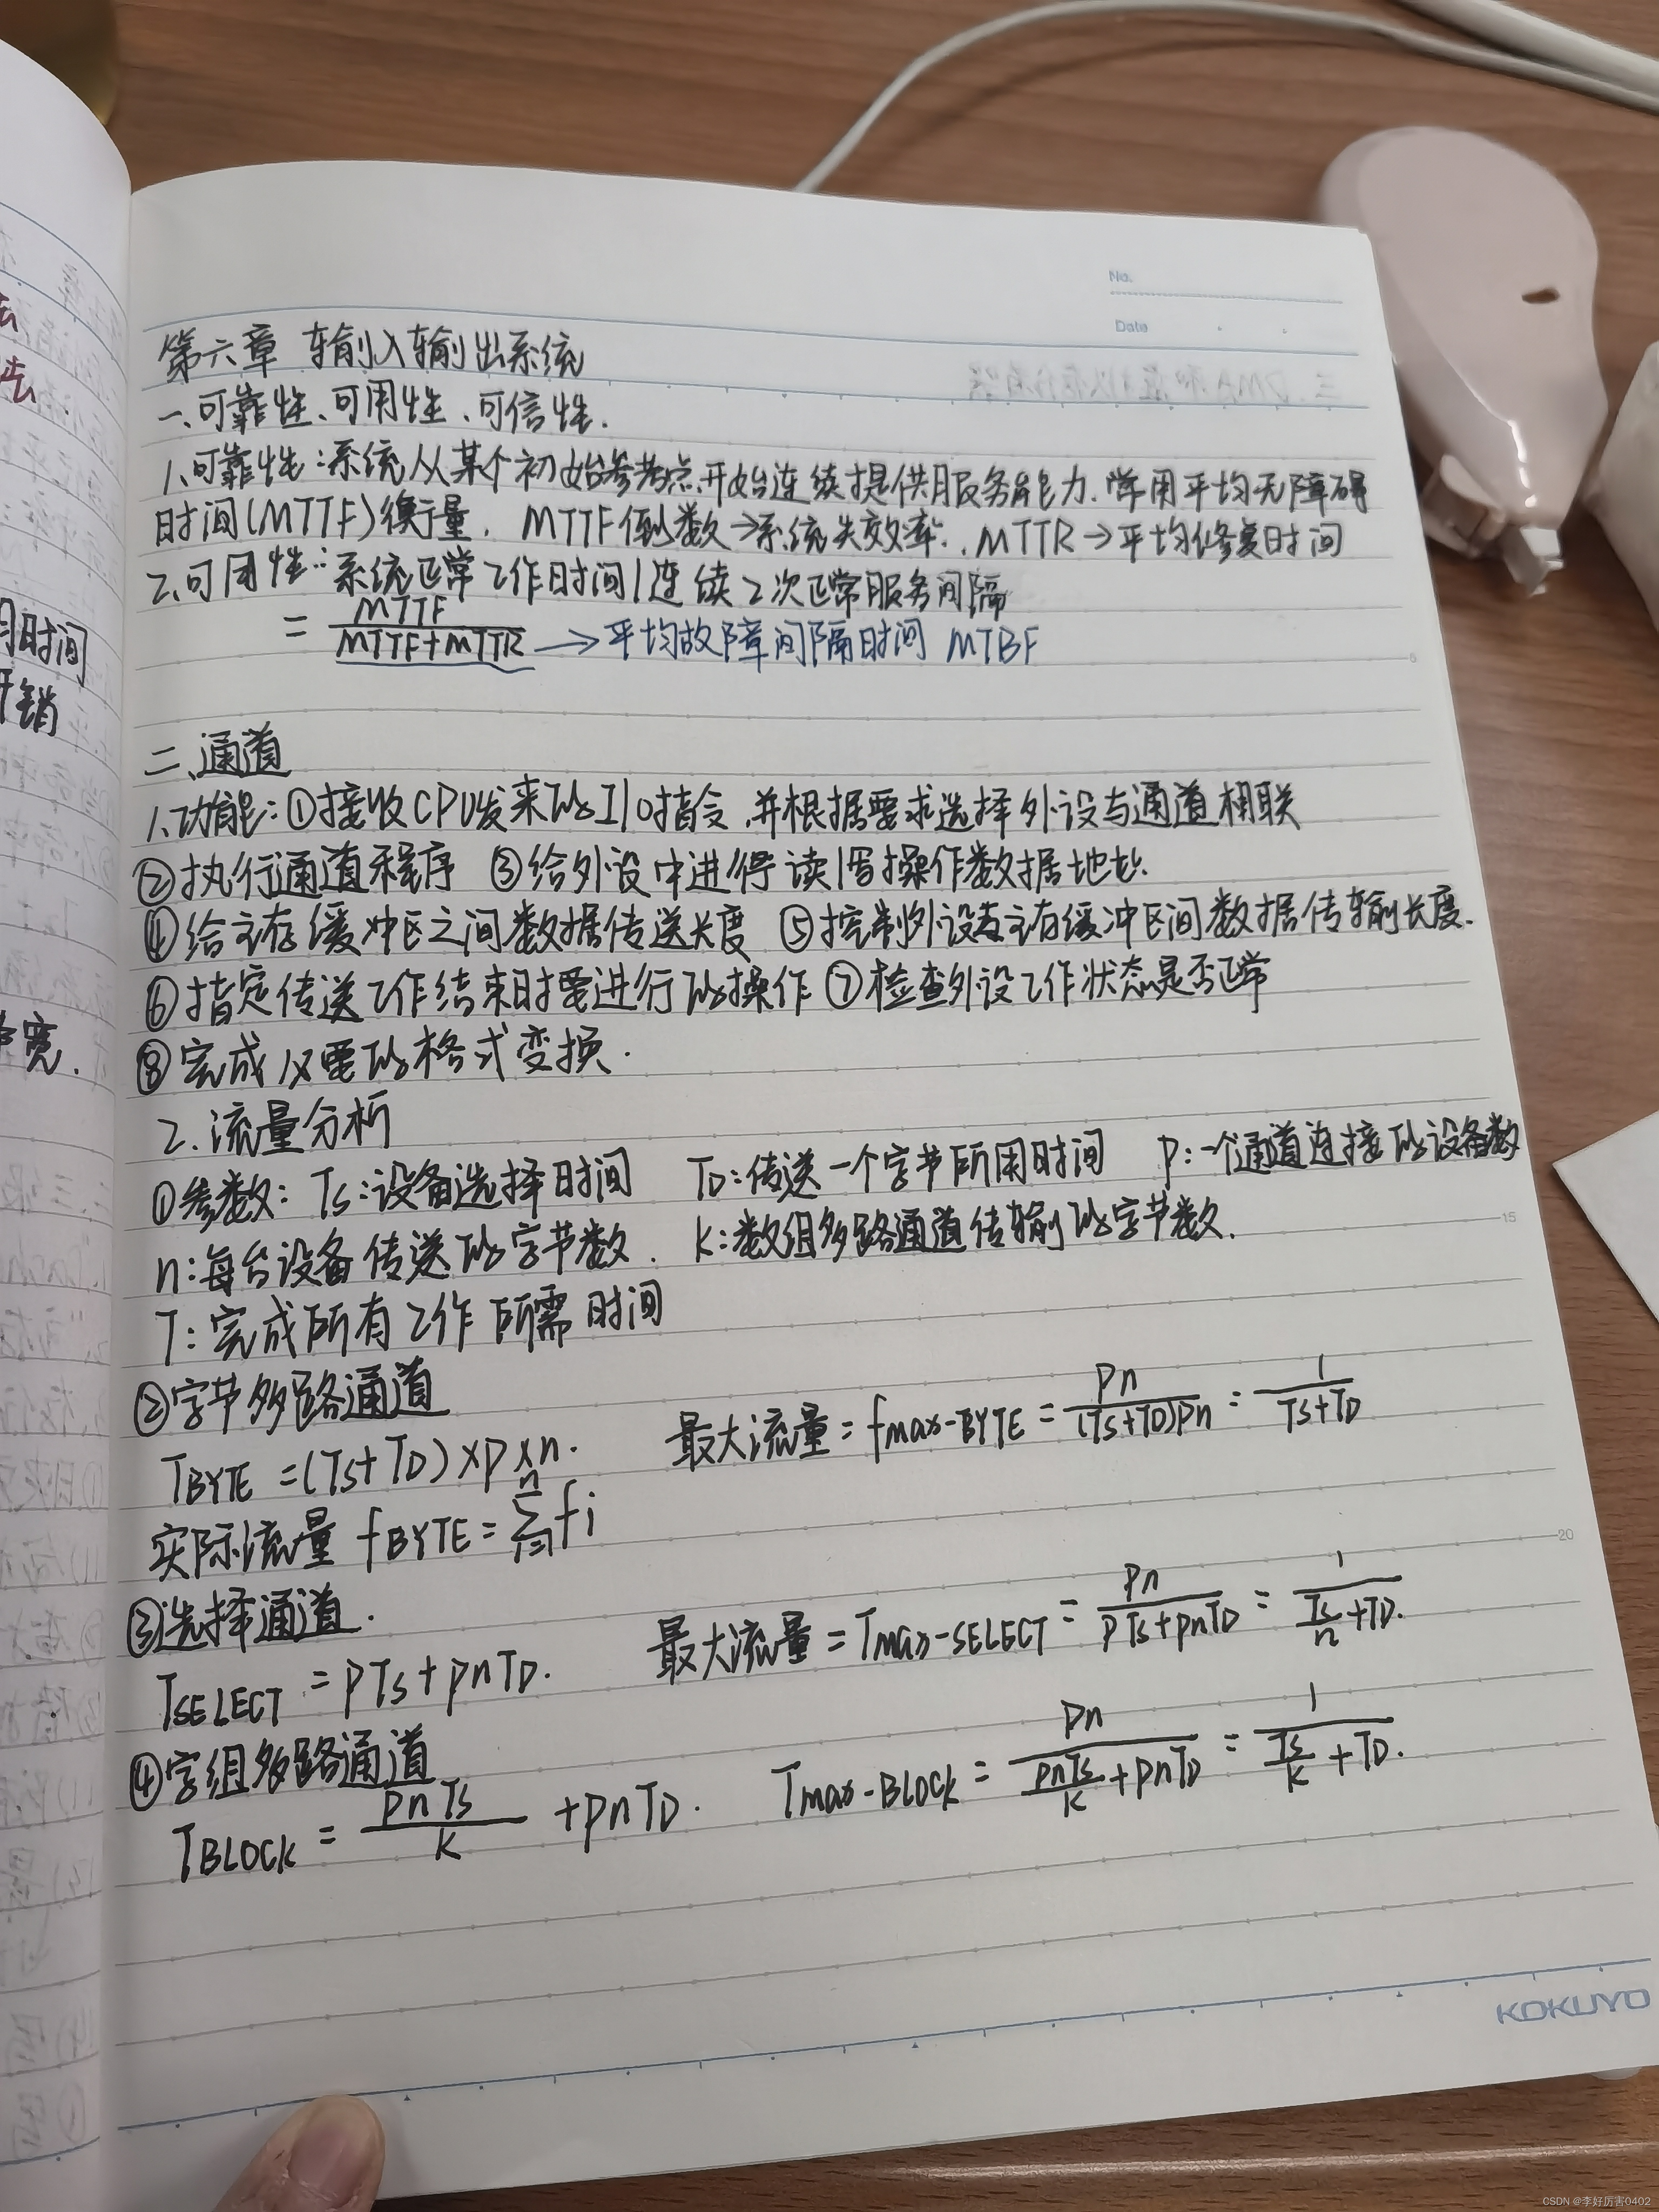 No.
Date
第六章 输入输出系统
一、可靠性、可用性、可信性.
1.可靠性:系统从某个初始参考点开始连续提供服务能力.常用平均无障碍
时间(MTTF)衡量. MTTF倒数→系统失效率. MTTR→平均修复时间
2.可用性:系统正常工作时间/连续2次正常服务间隔
= MTTF/(MTTF+MTTR) → 平均故障间隔时间 MTBF
5
二、通道
1.功能:①接收CPU发来的I/O指令,并根据要求选择外设与通道相联
②执行通道程序 ③给外设中进行读/写操作数据地址.
④给主存缓冲区之间数据传送长度 ⑤控制外设与主存缓冲区间数据传输长度.
⑥指定传送工作结束时要进行的操作 ⑦检查外设工作状态是否正常
⑧完成必要的格式变换.
2.流量分析
①参数: Ts:设备选择时间 TD:传送一个字节所用时间 P:一个通道连接的设备数
n:每台设备传送的字节数. k:数组多路通道传输的字节数.
15
T:完成所有工作所需时间
②字节多路通道
TBYTE =(Ts+TD)×P×n. 最大流量=fmax-BYTE = Pn/((Ts+TD)Pn) = 1/(Ts+TD)
实际流量 fBYTE = Σ(i=1→n) fi
20
③选择通道.
TSELECT = PTs+PnTD. 最大流量=Tmax-SELECT = Pn/(PTs+PnTD) = 1/(Ts/n+TD).
④字组多路通道
TBLOCK = PnTs/K +PnTD. Tmax-BLOCK = Pn/(PnTs/K+PnTD) = 1/(Ts/K+TD).
KOKUYO
用时间
开销
宽.
CSDN @李好厉害0402